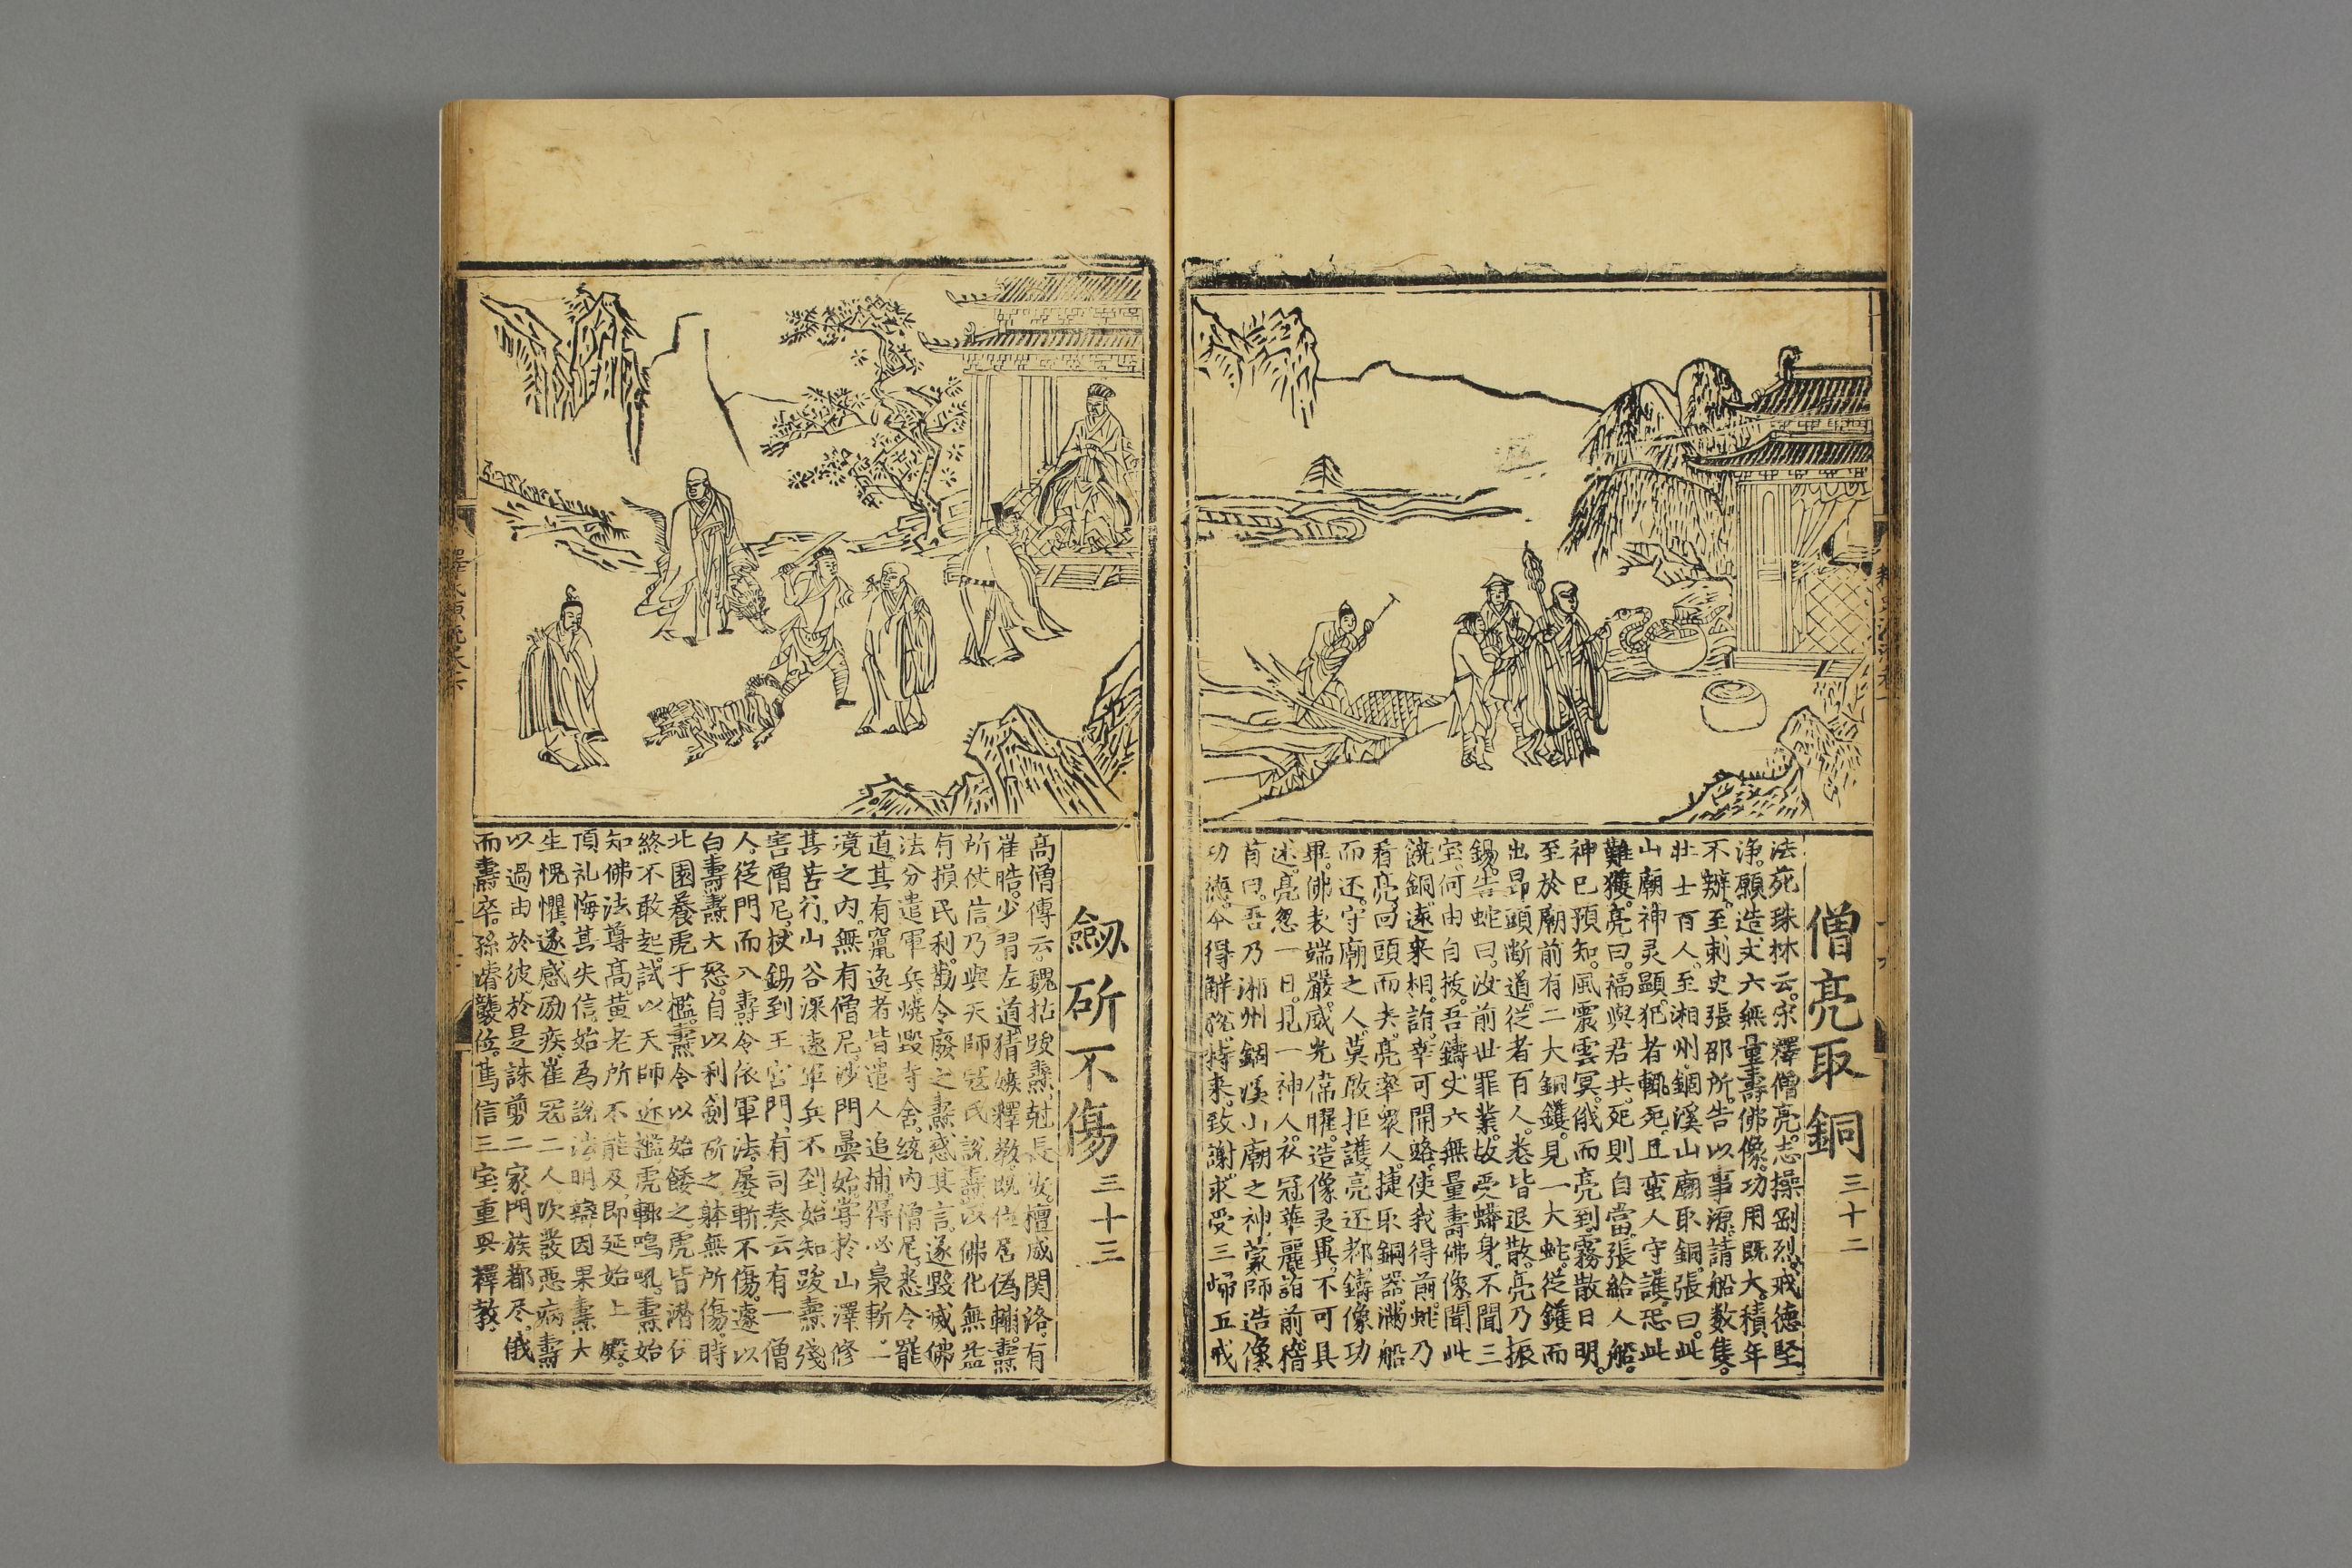 僧亮取銅 三十二
法苑珠林云。宋釋僧亮。志操剛烈。戒德堅
淨。願造丈六無量壽佛像。功用既大。積年
不辦。至刺史張邵所。告以事源。請船數隻。
壮士百人。至湘州。銅溪山廟取銅。張曰。此
山廟神灵顯。犯者輒死。且蛮人守護。恐此
難獲。亮曰。福與君共。死則自當。張給人船。
神已預知。風震雲冥。俄而亮到。霧散日明。
至於廟前有二大銅鑊。見一大蛇。從鑊而
出昂頭断道。從者百人。悉皆退散。亮乃振
錫。告蛇曰。汝前世罪業。故受蟒身。不聞三
宝。何由自拔。吾鑄丈六無量壽佛像。聞此
饒銅。遠来相詣。幸可開路。使我得前。蛇乃
看亮。回頭而去。亮率衆人。捷取銅器。滿船
而还。守廟之人。莫敢拒護。亮还都。鑄像功
畢。佛表端嚴。威光偉曜。造像灵異。不可具
述。亮忽一日。見一神人。衣冠華麗。詣前稽
首曰。吾乃湘州銅溪山廟之神。蒙師造像
功德。今得解脫。特来致謝。求受三歸五戒
劒斫不傷 三十三
高僧傳云。魏拓跋燾。尅長安。擅威関洛。有
崔晧。少習左道。猜嫉釋教。既位居偽輔。燾
所伏信乃與天師寇氏說燾以佛化無益
有損民利。勸令廢之。燾惑其言。遂毀滅佛
法分遣軍兵。燒毀寺舍。統内僧尼。悉令罷
道。其有竄逸者。皆遣人追捕。得必梟斬。一
境之内。無有僧尼。沙門曇始。常於山澤修
其苦行。山谷深遠軍兵不到。始知跋燾殘
害僧尼。杖錫到王宮門。有司奏云。有一僧
人。從門而入。燾令依軍法。屡斬不傷。遽以
白燾。燾大怒。自以利劍斫之。躰無所傷。時
北園養虎于檻。燾令以始餧之。虎皆潜伏
終不敢起。試以天師近檻。虎輒鳴吼。燾始
知佛法尊高。黄老所不能及。即延始上殿。
頂礼悔其失信。始為說法。明辯因果。燾大
生愧懼。遂感厲疾。崔寇二人。次發惡病。燾
以過由於彼。於是誅剪二家。門族都尽。俄
而燾卒。孫濬襲位。篤信三宝。重興釋教。